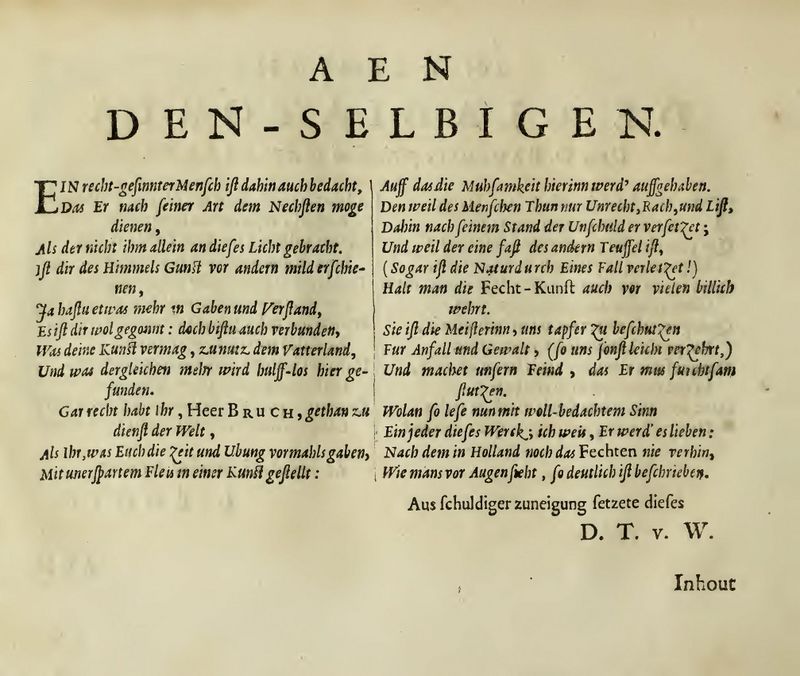 AEN
DEN-SELBIGEN.
EIN recht-gesinnter Mensch ist dahin auch bedacht,
Das Er nach seiner Art dem Nechsten moge
dienen,
Als der nicht ihm allein an dieses Licht gebracht.
Ist dir des Himmels Gunst vor andern mild erschie-
nen,
Ja hastu etwas mehr in Gaben und Verstand,
Es ist dir wol gegonnt: doch bistu auch verbunden,
Was deine Kunst vermag, zu nutz dem Vatterland,
Und was dergleichen mehr wird hulff-los hier ge-
funden.
Gar recht habt Ihr, Heer BRUCH, gethan zu
dienst der Welt,
Als Ihr, was Euch die Zeit und Ubung vormahls gaben,
Mit unerspartem Fleis in einer Kunst gestellt:
Auff das die Muhsamkeit hierinn werd' auffgehaben.
Den weil des Menschen Thun nur Unrecht, Rach, und List,
Dahin nach seinem Stand der Unschuld er versetzet;
Und weil der eine fast des andern Teuffel ist,
(So gar ist die Natur durch Eines Fall verletzet!)
Halt man die Fecht-Kunst auch vor vielen billich
wehrt.
Sie ist die Meisterinn, uns tapfer zu beschutzen
Fur Anfall und Gewalt, (so uns sonst leicht verzehrt,)
Und machet unsern Feind, das Er mus furchtsam
stutzen.
Wolan so lese nun mit woll-bedachtem Sinn
Ein jeder dieses Werck; ich weis, Er werd' es lieben:
Nach dem in Holland noch das Fechten nie verhin,
Wie mans vor Augen sieht, so deutlich ist beschrieben.
Aus schuldiger zuneigung setzete dieses
D. T. v. W.
Inhout